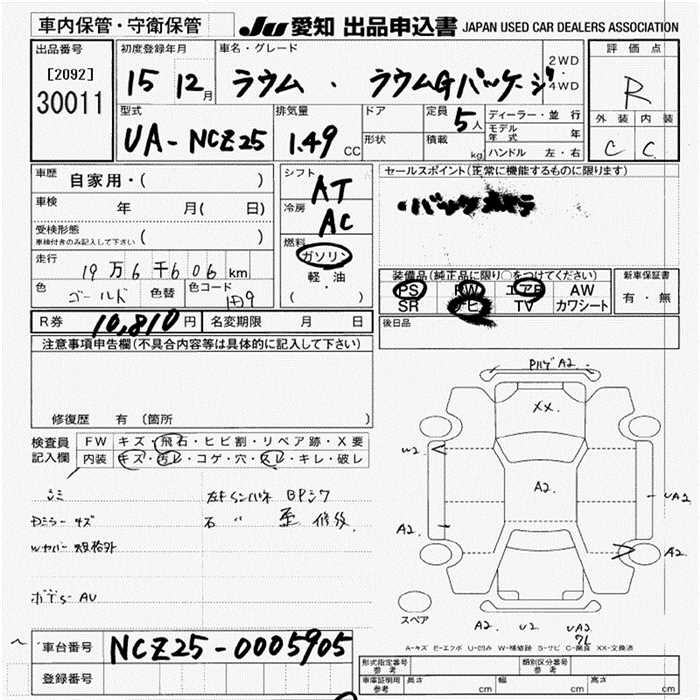 車内保管・守衛保管
JU 愛知 出品申込書 JAPAN USED CAR DEALERS ASSOCIATION
出品番号
[2092]
30011
初度登録年月
15 12月
車名・グレード
ラウム ・ ラウムGパッケージ
2WD
・
4WD
評価点
R
外装 内装
C C
型式
UA-NCZ25
排気量
1.49 CC
ドア
形状
定員 5人
積載 kg
ディーラー・並行
モデル年式 年
ハンドル 左・右
車歴 自家用・( )
車検 年 月( 日)
受検形態
車検付きのみ記入して下さい ( )
走行 19万6千606km
色 ゴールド 色替 色コード
R券 10,810円 名変期限 月 日
シフト AT
冷房 AC
燃料
ガソリン
軽・油
( ・ )
セールスポイント(正常に機能するものに限ります)
・バックカメラ
装備品(純正品に限り○をつけてください)
PS PW エアB AW
SR ナビ TV カワシート
新車保証書
有・無
後日品
注意事項申告欄(不具合内容等は具体的に記入して下さい)
修復歴 有 (箇所 )
検査員記入欄
FW キズ・飛石・ヒビ割・リペア跡・X要
内装 キズ・汚レ・コゲ・穴・スレ・キレ・破レ
Dミラーキズ
Wカバー規格外
AU
歪 修後
PバゲA2
XX.
W2
A2.
UA2
A2.
A2
スペア
A2. U2 UA2
A-キズ E-エクボ U-凹み W-補修跡 S-サビ C-腐食 XX-交換済
車台番号 NCZ25-0005905
登録番号
形式指定番号
参考
類別区分番号
参考
車庫証明用
参考
長さ cm 幅 cm 高さ cm